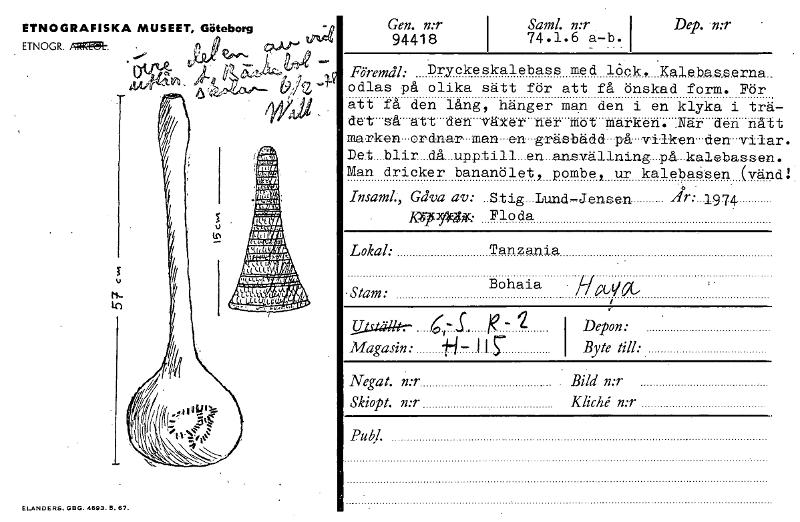 ETNOGRAFISKA MUSEET, Göteborg
ETNOGR. ARKEOL.
övre delen av
utlån. t. Bäckebol-
skolan 6/2-78
Wall
57 cm
15 cm
ELANDERS. GBG. 4693. B. 67.
Gen. n:r
94418
Saml. n:r
74.1.6 a-b.
Dep. n:r
Föremål: Dryckeskalebass med lock. Kalebasserna
odlas på olika sätt för att få önskad form. För
att få den lång, hänger man den i en klyka i trä-
det så att den växer ner mot marken. När den nått
marken ordnar man en gräsbädd på vilken den vilar.
Det blir då upptill en ansvällning på kalebassen.
Man dricker bananölet, pombe, ur kalebassen (vänd!
Insaml., Gåva av: Stig Lund-Jensen År: 1974
Köp från: Floda
Lokal: Tanzania
Stam: Bohaia Haya
Utställt: 6,-S. R-2
Magasin: H-115
Depon:
Byte till:
Negat. n:r
Skiopt. n:r
Bild n:r
Kliché n:r
Publ.